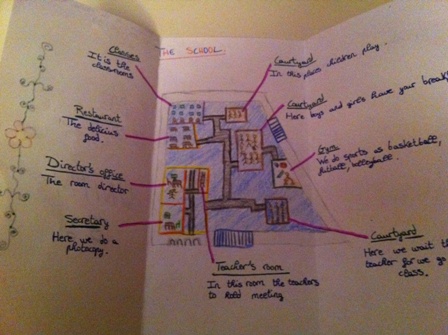 THE SCHOOL.
Classes
It is the
classrooms
Restaurant
The delicius
food.
Director's office
The room director
Secretary
Here, we do a
photocopy.
Teacher's room
In this room the teachers
to hold meeting
Courtyard
In this place children play.
Courtyard
Here boys and girls have your break
Gym
We do sports as basketball,
futball, volleyball.
Courtyard
Here we wait the
teacher for we go
class.